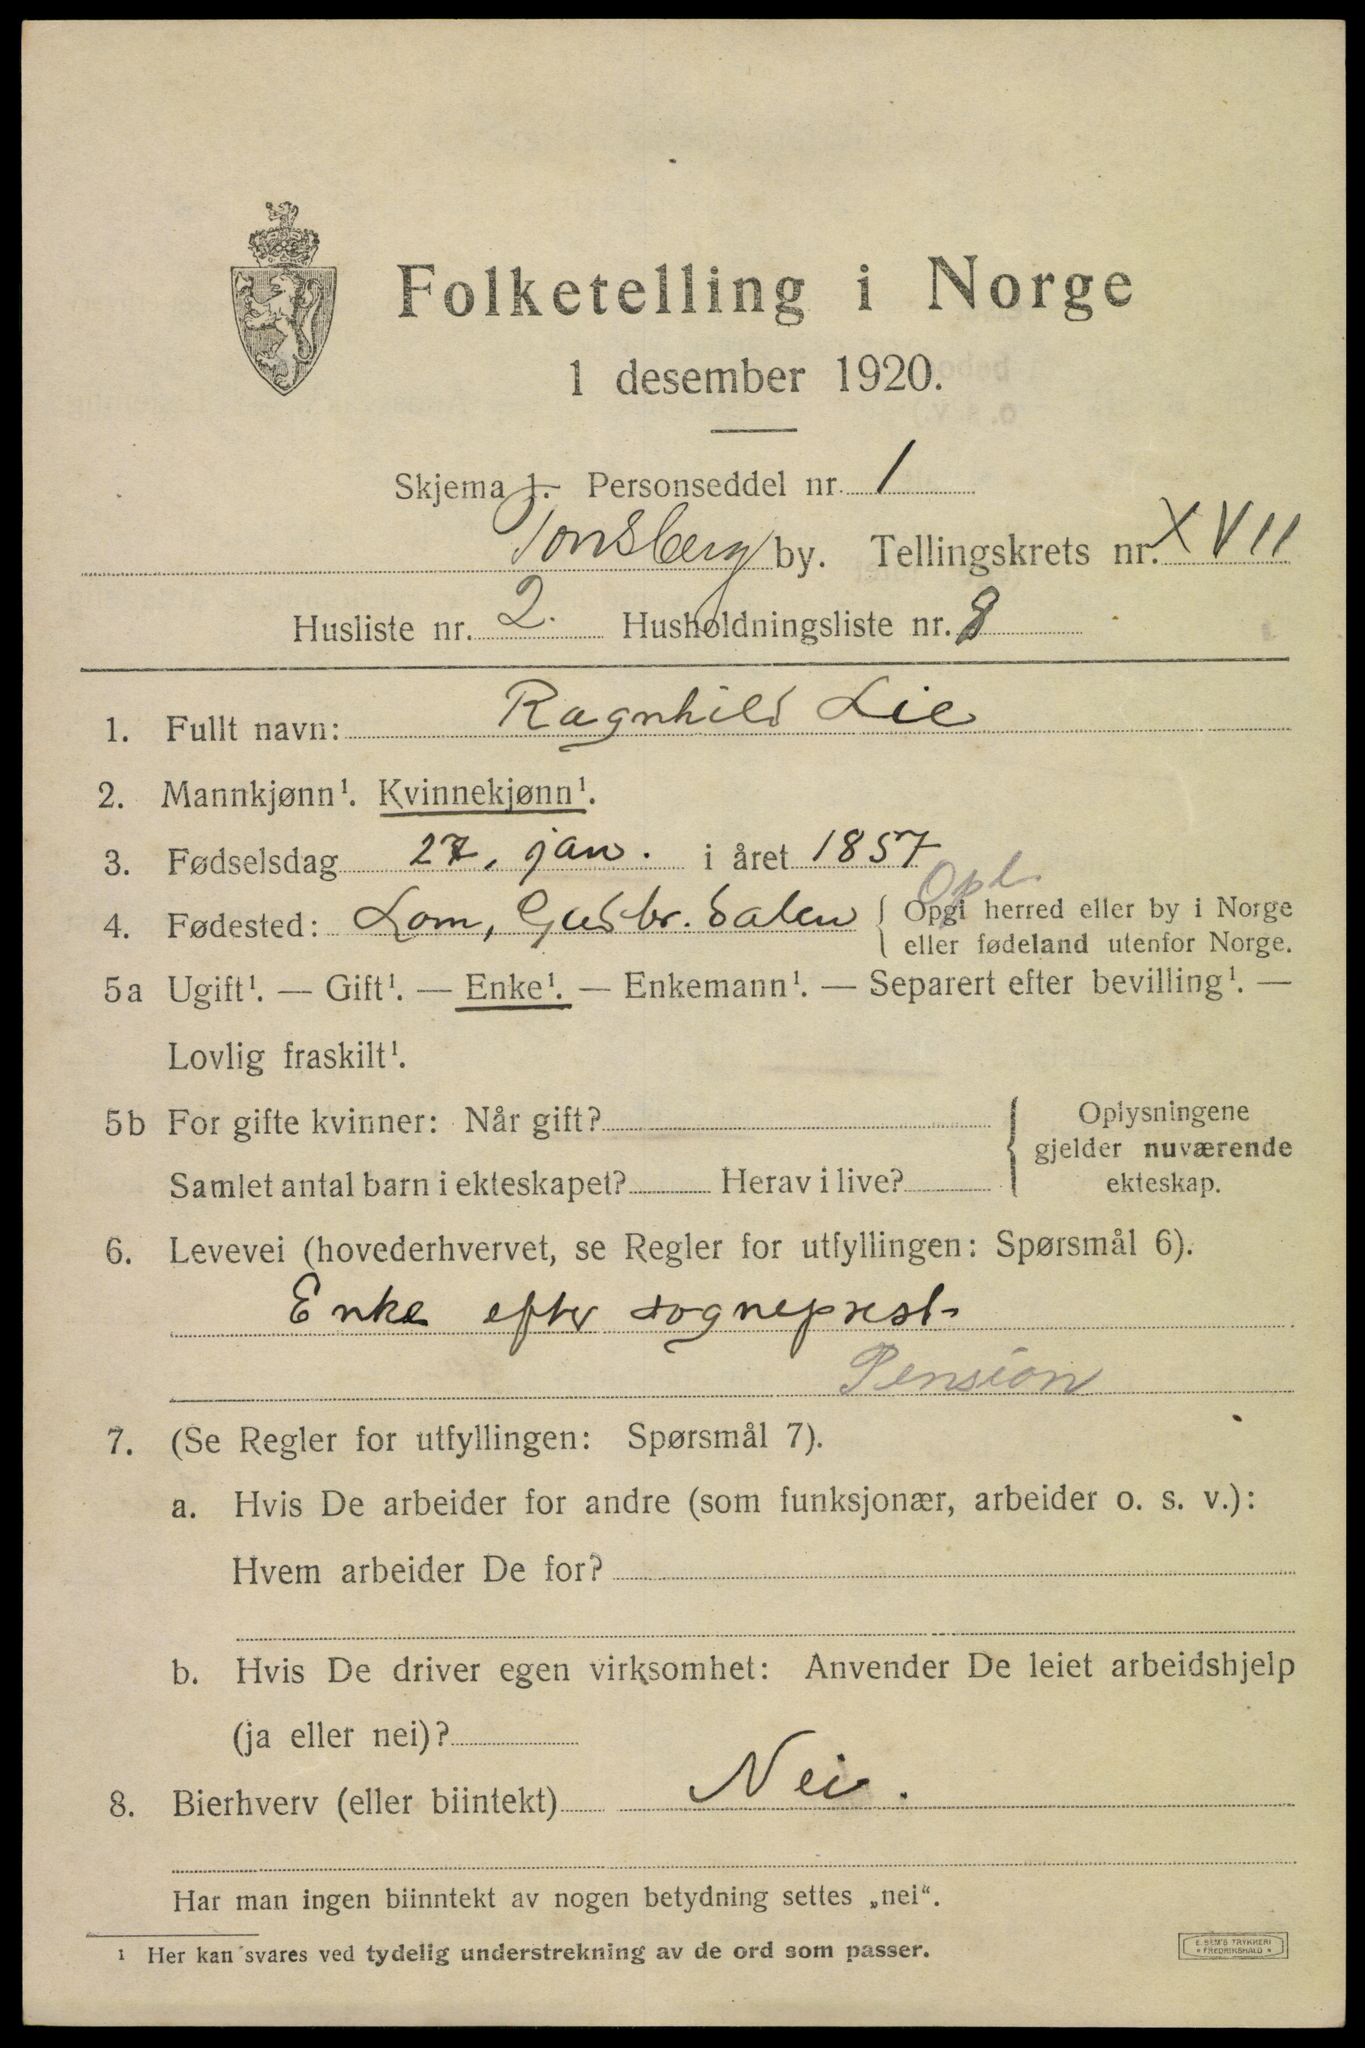 Folketelling i Norge
1 desember 1920.
Skjema 1. Personseddel nr. 1
Tønsberg by. Tellingskrets nr. XVII
Husliste nr. 2. Husholdningsliste nr. 8
1. Fullt navn: Ragnhild Lie
2. Mannkjønn¹. Kvinnekjønn¹.
3. Fødselsdag 27. jan. i året 1857
Opl
4. Fødested: Lom, Gudbr.dalen { Opgi herred eller by i Norge
eller fødeland utenfor Norge.
5a Ugift¹. — Gift¹. — Enke¹. — Enkemann¹. — Separert efter bevilling¹. —
Lovlig fraskilt¹.
5b For gifte kvinner: Når gift?
Samlet antal barn i ekteskapet? Herav i live?
Oplysningene
gjelder nuværende
ekteskap.
6. Levevei (hovederhvervet, se Regler for utfyllingen: Spørsmål 6).
Enke efter sogneprest
Pension
7. (Se Regler for utfyllingen: Spørsmål 7).
a. Hvis De arbeider for andre (som funksjonær, arbeider o. s. v.):
Hvem arbeider De for?
b. Hvis De driver egen virksomhet: Anvender De leiet arbeidshjelp
(ja eller nei)?
8. Bierhverv (eller biintekt) Nei.
Har man ingen biinntekt av nogen betydning settes „nei“.
¹ Her kan svares ved tydelig understrekning av de ord som passer.
E. SEM'S TRYKKERI
* FREDRIKSHALD *